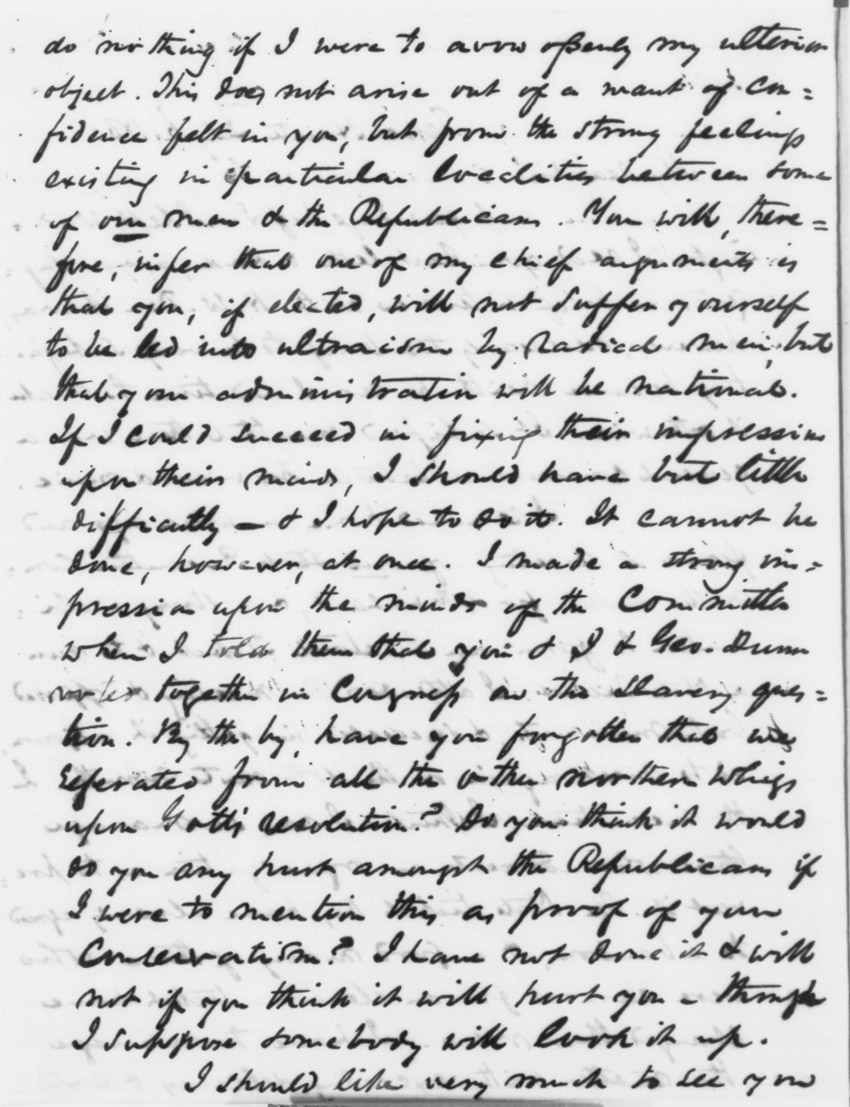 do nothing if I were to avow openly my ulterior
object. This does not arise out of a want of con=
fidence felt in you, but from the strong feelings
existing in particular localities between some
of our men & the Republicans. You will, there=
fore, infer that one of my chief arguments is
that you, if elected, will not suffer yourself
to be led into ultraism by radical men, but
that your administration will be national.
If I could succeed in fixing their impression
upon their minds, I should have but little
difficulty — & I hope to do it. It cannot be
done, however, at once. I made a strong im=
pression upon the minds of the Committee
when I told them that you & I & Geo. Dunn
voted together in Congress on the slavery ques=
tion. By the by, have you forgotten that we
seperated from all the other northern Whigs
upon Gott's resolution? Do you think it would
do you any hurt amongst the Republicans if
I were to mention this as proof of your
Conservatism? I have not done it & will
not if you think it will hurt you – though
I suppose somebody will look it up.
I should like very much to see you